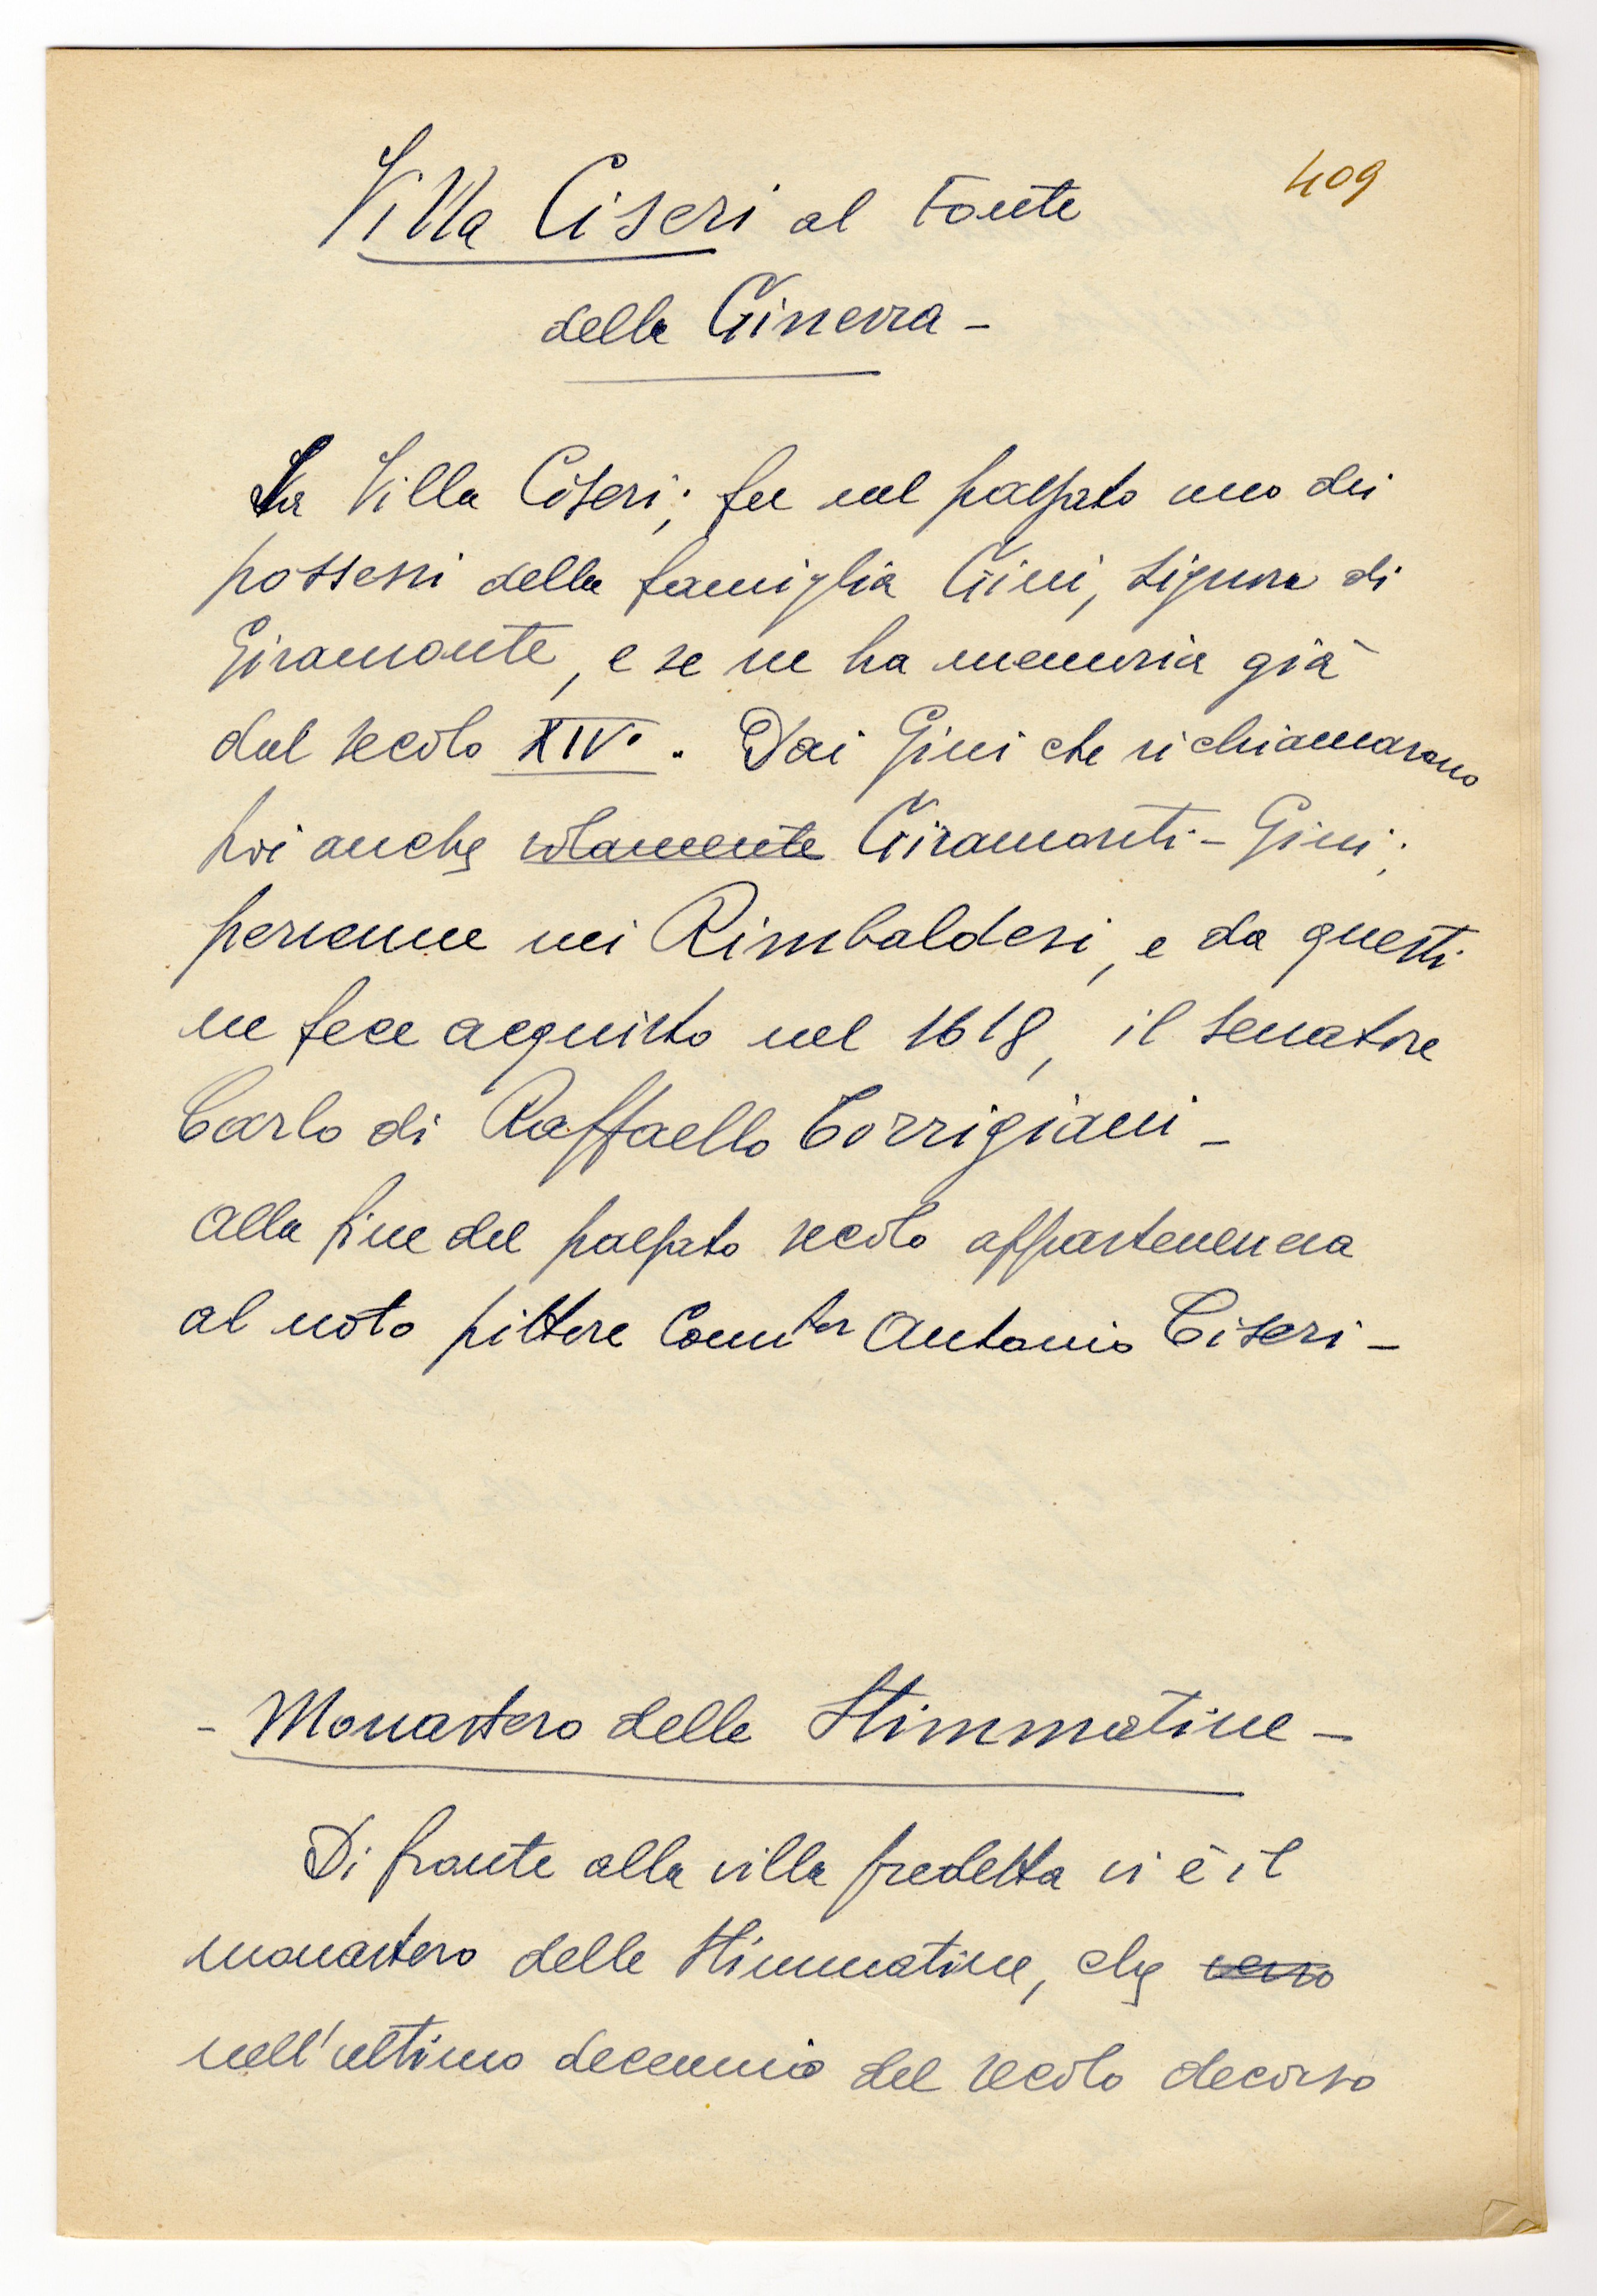 409
Villa Ciseri al Fonte
della Ginevra -
La Villa Ciseri; fu nel passato uno dei
possessi della famiglia Gini, signora di
Giramonte, e se ne ha memoria già
dal secolo XIV°. Dai Gini che si chiamarono
poi anche solamente Giramonti - Gini;
pervenne nei Rimbaldesi, e da questi
ne fece acquisto nel 1618, il senatore
Carlo di Raffaello Torrigiani -
alla fine del passato secolo apparteneva
al noto pittore Comter Antonio Ciseri -
- Monastero delle Stimmatine -
Di fronte alla villa predetta vi è il
monastero delle Stimmatine, che verso
nell'ultimo decennio del secolo decorso